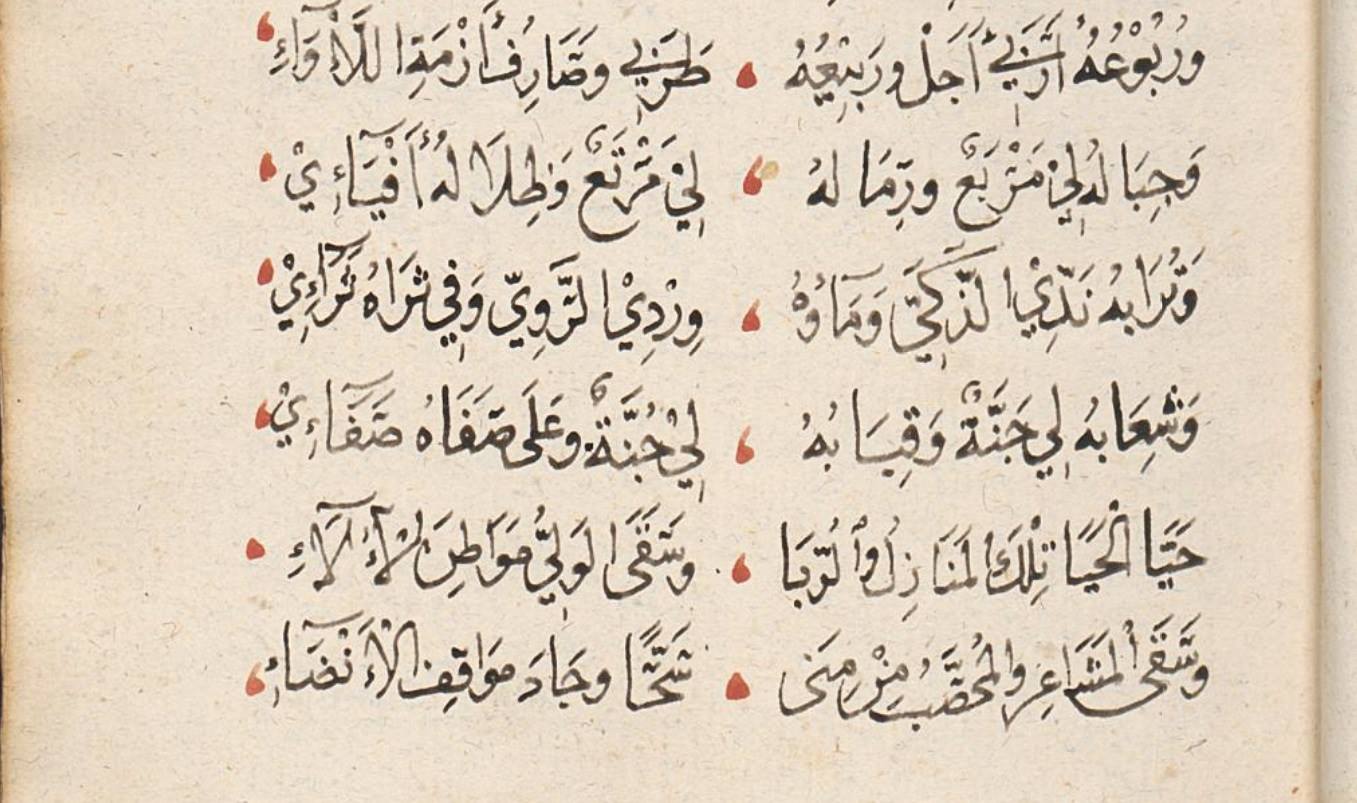 وَرُبُوْعُهُ أَرَبِيْ أَجَلْ وَرَبِيْعُهُ ، طَرَبِيْ وَصَارِفُ أَزْمَةِ اللَّأْوَاءِ ،
وَجِبَالُهُ لِيْ مَرْبَعٌ وَرِمَالُهُ ، لِيْ مَرْتَعٌ وَظِلَالُهُ أَفْيَاءِيْ ،
وَتُرَابُهُ نَدِّيْ الذَّكِيّ وَمَاؤُهُ ، وِرْدِيْ الرَّوِيّ وَفِي ثَرَاهُ ثَرَاءِيْ ،
وَشِعَابُهُ لِي جَنَّةٌ وَقِبَابُهُ ، لِيْ جُنَّةٌ وَعَلَى صَفَاهُ صَفَاءِيْ ،
حَيَّا الْحَيَا تِلْكَ الْمَنَازِلُ وَالرُّبَا ، وَسَقَى الوَلِيُّ مَوَاطِنَ الْآلَاءِ ،
وَسَقَى الْمَشَاعِر وَالْمُحَصَّبُ مِنْ مِنَى ، سَحًّا وَجَادَ مَوَاقِفَ الْأَنْضَاءِ ،